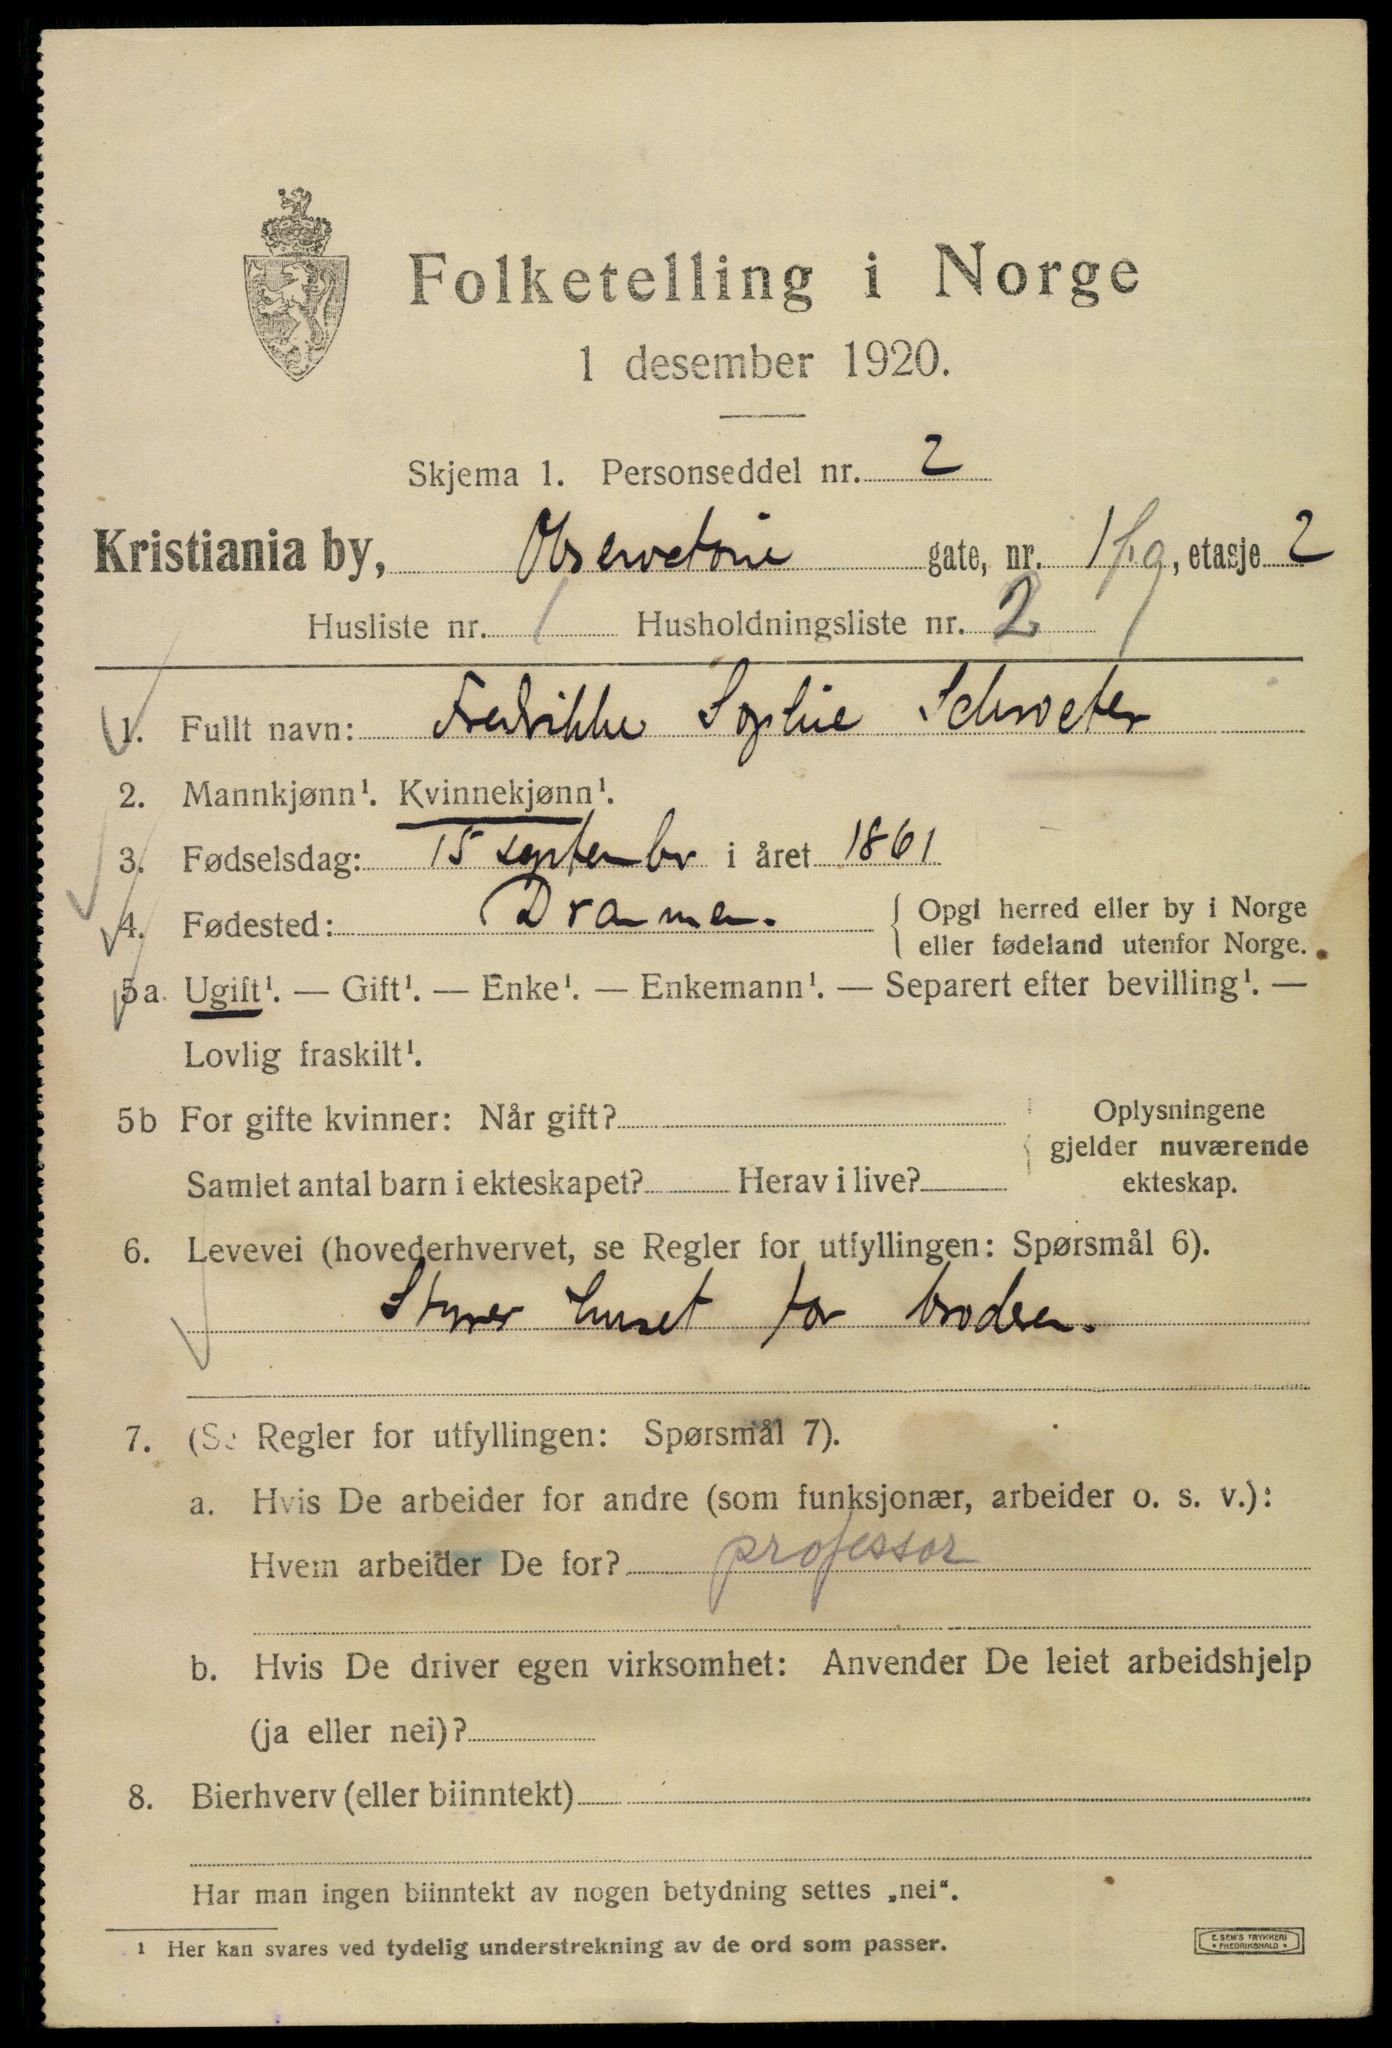 Folketelling i Norge
1 desember 1920.
Skjema 1. Personseddel nr. 2
Kristiania by, Observatorie gate, nr. 1 fg, etasje 2
Husliste nr. 1 Husholdningsliste nr. 2
1. Fullt navn: Fredrikke Sophie Schroeter
2. Mannkjønn¹. Kvinnekjønn¹.
3. Fødselsdag: 15 september i året 1861
4. Fødested: Drammen. { Opgi herred eller by i Norge
eller fødeland utenfor Norge.
5a. Ugift¹. — Gift¹. — Enke¹. — Enkemann¹. — Separert efter bevilling¹. —
Lovlig fraskilt¹.
5b For gifte kvinner: Når gift? Oplysningene
gjelder nuværende
Samlet antal barn i ekteskapet? Herav i live? ekteskap.
6. Levevei (hovederhvervet, se Regler for utfyllingen: Spørsmål 6).
Styrer huset for broderen.
7. (Se Regler for utfyllingen: Spørsmål 7).
a. Hvis De arbeider for andre (som funksjonær, arbeider o. s. v.):
Hvem arbeider De for? professor
b. Hvis De driver egen virksomhet: Anvender De leiet arbeidshjelp
(ja eller nei)?
8. Bierhverv (eller biinntekt)
Har man ingen biinntekt av nogen betydning settes „nei“.
¹ Her kan svares ved tydelig understrekning av de ord som passer.
E. SEM'S TRYKKERI
• FREDRIKSHALD •